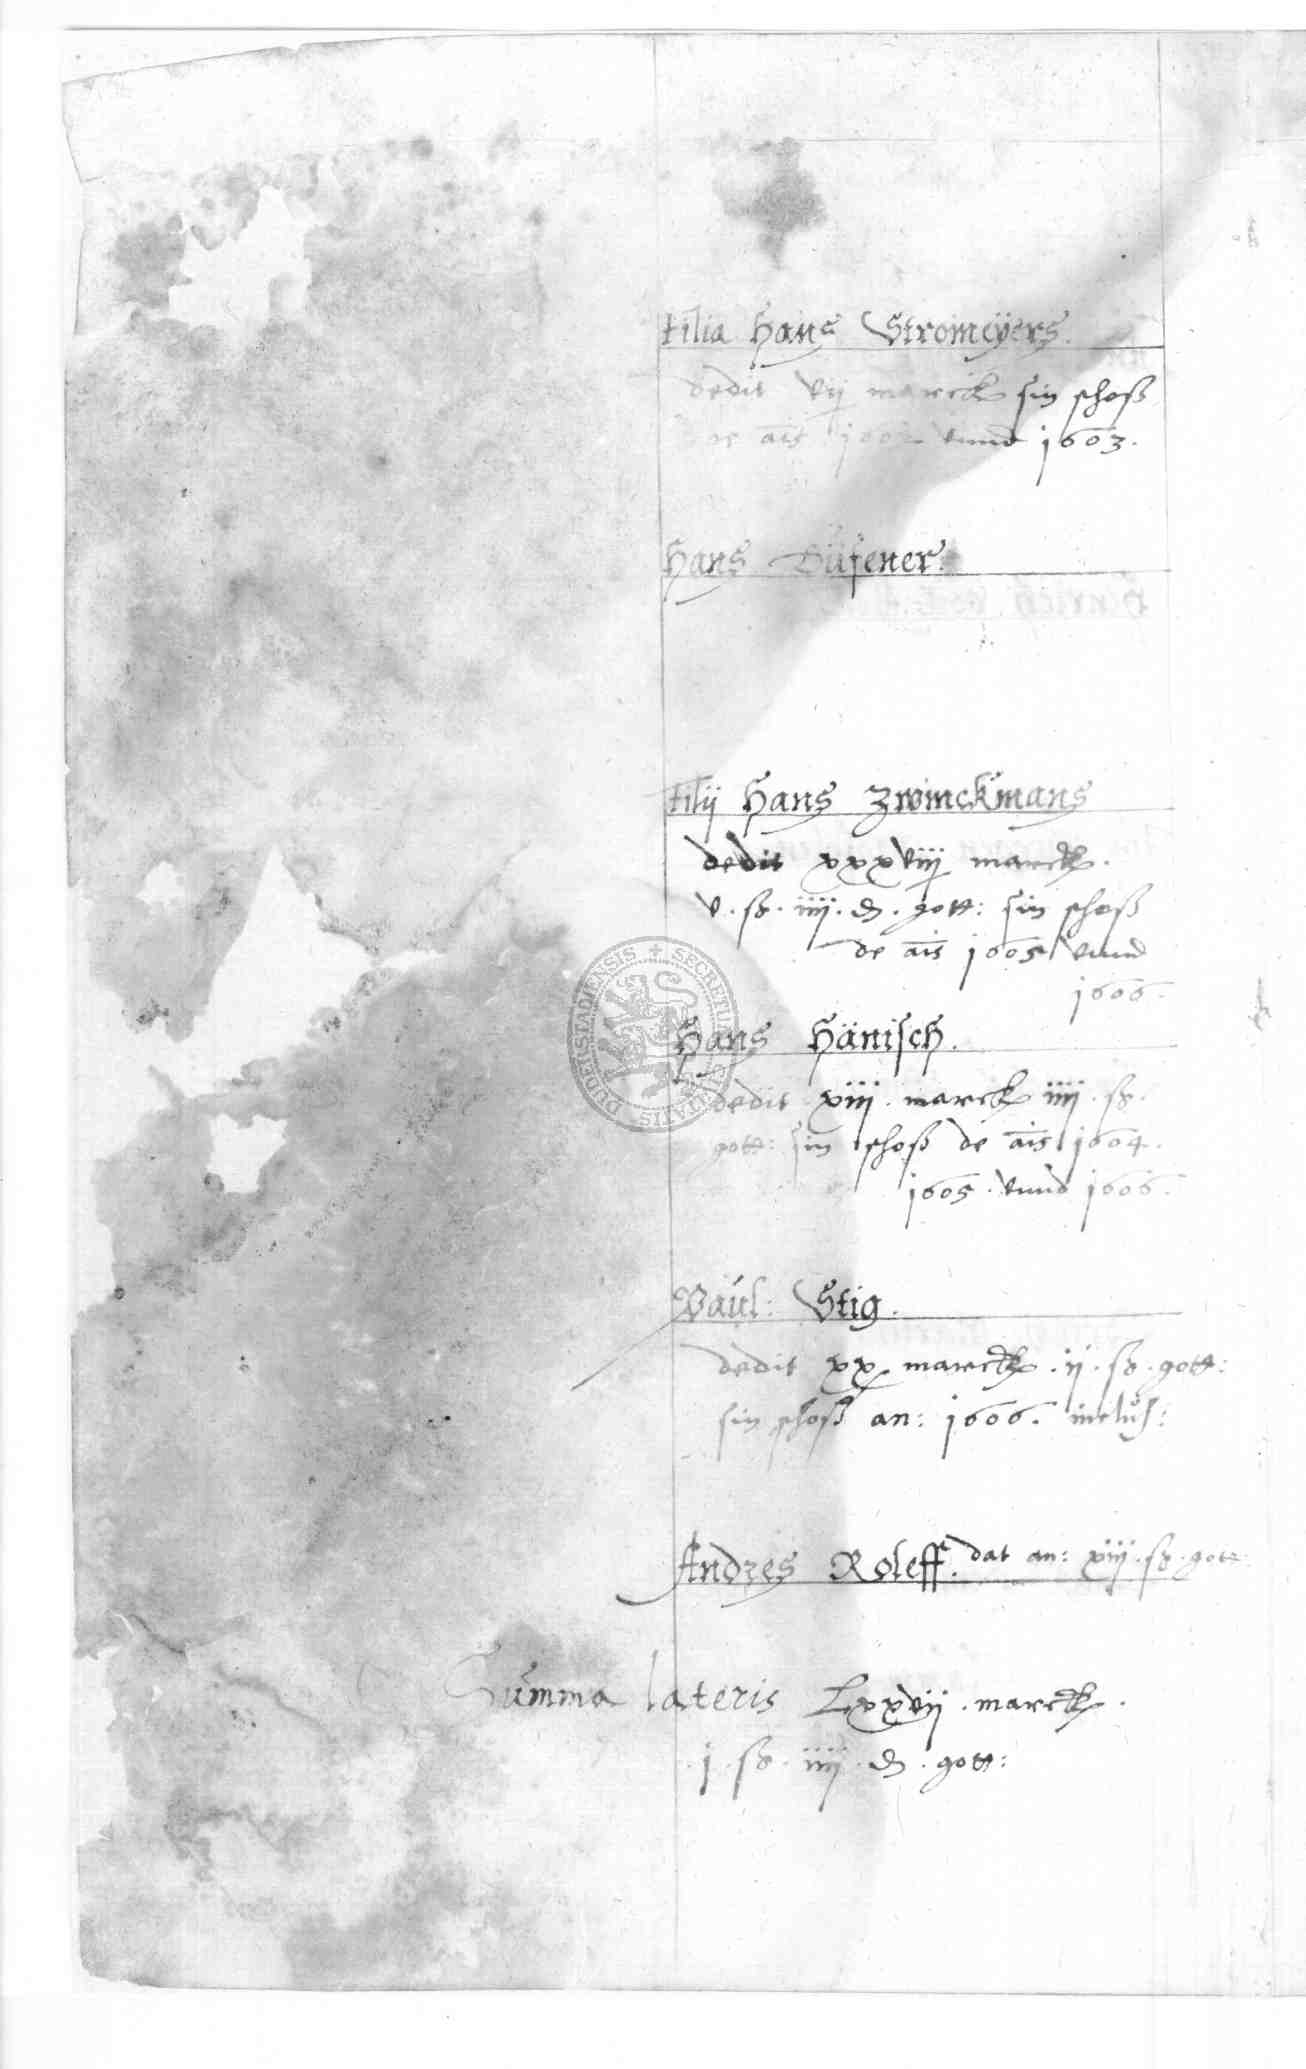 filia Hans Stromeÿers.
dedit vij marck sin schoß
de ais 1602 vnnd 1603.
Hans Düfener.
filij Hans Zwinckmans
dedit xxxviij marck.
v. ß. iiij. d. gott: sin schoß
de ais 1605 vnnd
1606.
Hans Hänisch.
dedit xiij. marck iiij. ß.
gott: sin schoß de ais 1604.
1605. vnnd 1606.
Paul: Stig.
dedit xx marck. ij. ß. gott:
sin schoß an: 1606. inclus:
Andres Roleff. dat an: xiij. ß. gott:
Summa lateris Lxxvij. marck.
j. ß. iiij. d. gott:
SECRETUM CIVITATIS DUDERSTADIENSIS